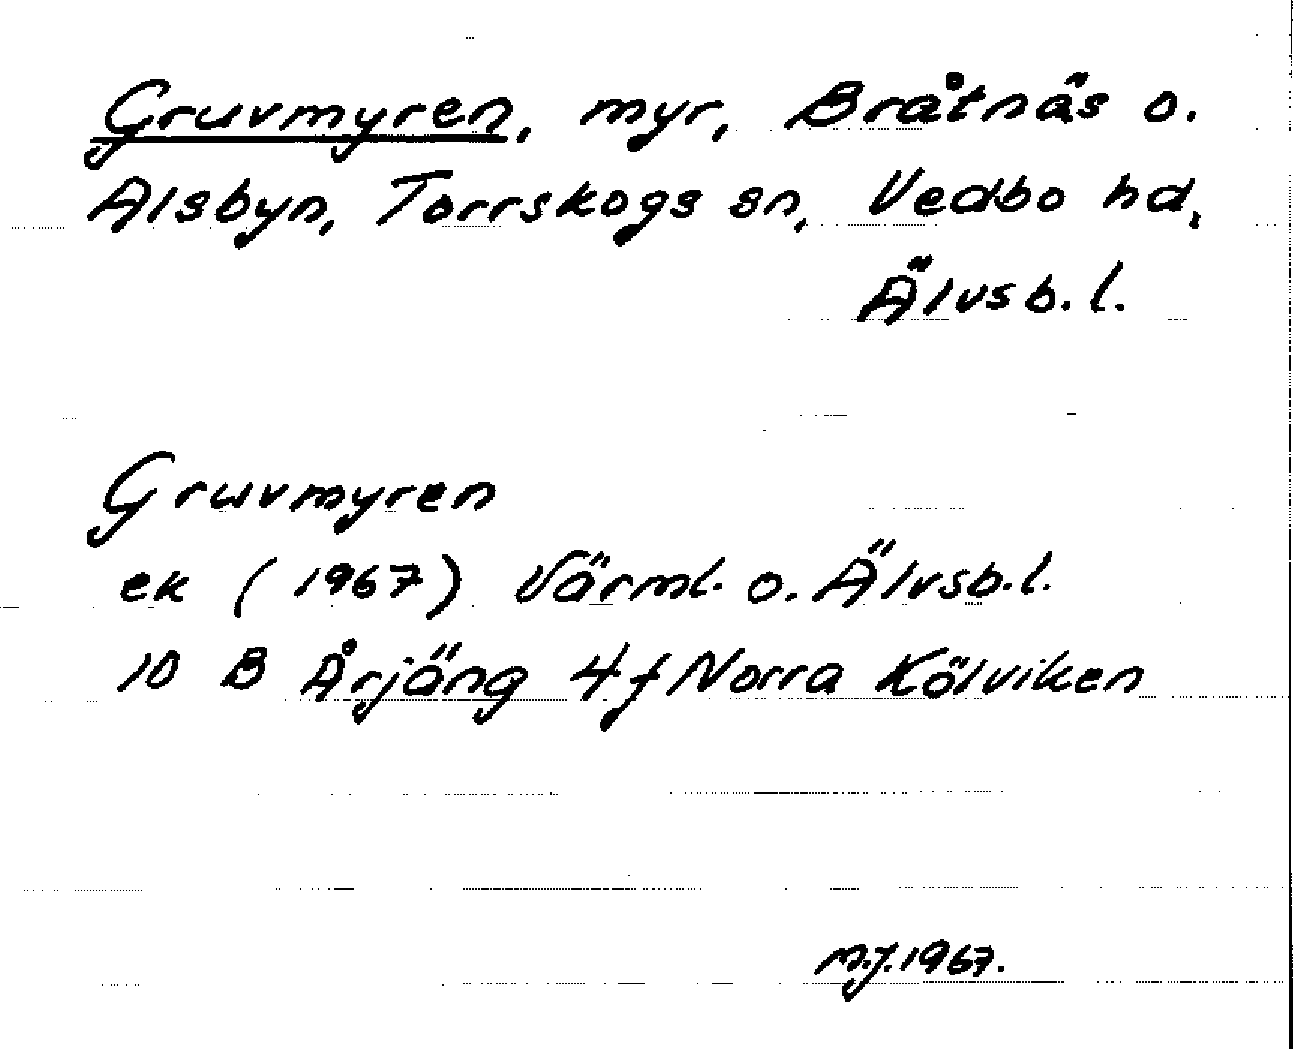 Gruvmyren, myr, Bråtnäs o.
Alsbyn, Torrskogs sn, Vedbo hd,
Älvsb. l.
Gruvmyren
ek (1967) Värml. o. Älvsb. l.
10 B Årjäng 4 f Norra Kölviken
M.J. 1967.